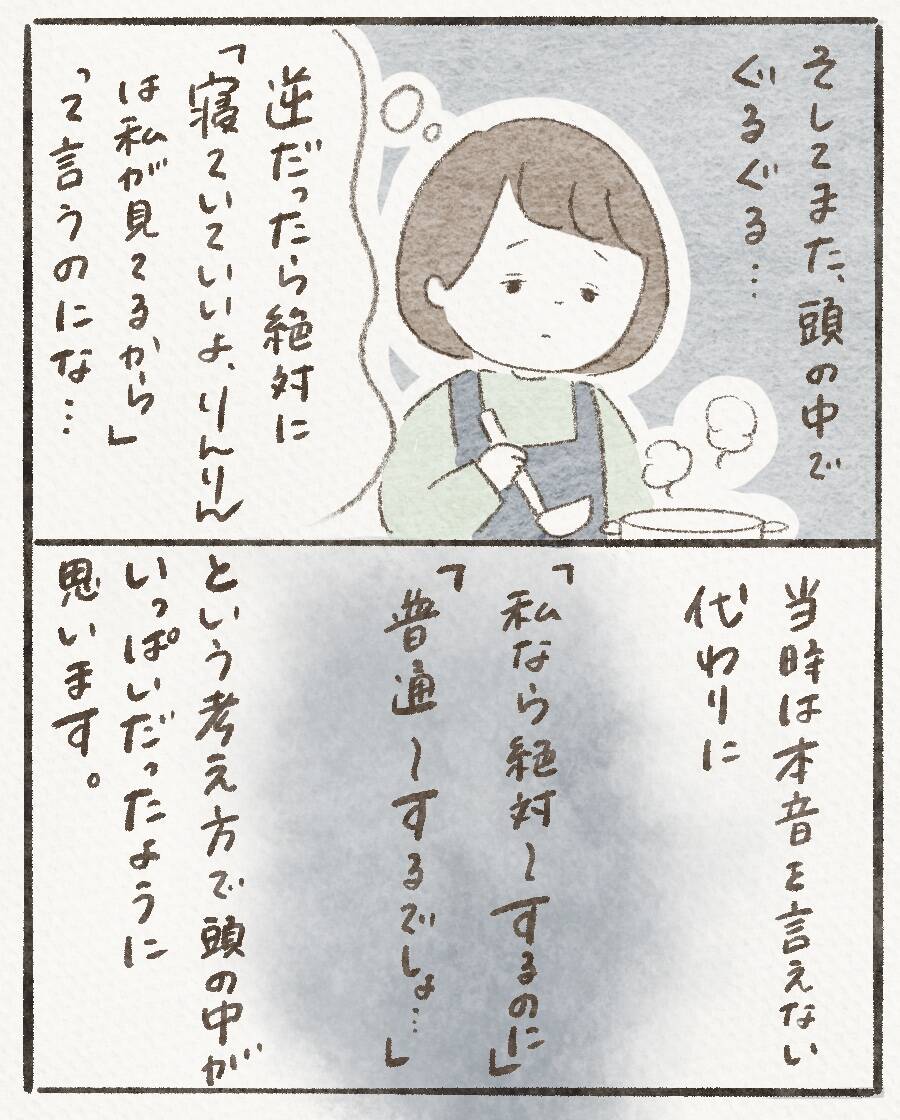 そしてまた、頭の中で
ぐるぐる…
逆だったら絶対に
「寝ていていいよ、りんりん
は私が見てるから」
って言うのにな…
当時は本音を言えない
代わりに
「私なら絶対〜するのに」
「普通〜するでしょ…」
という考え方で頭の中が
いっぱいだったように
思います。